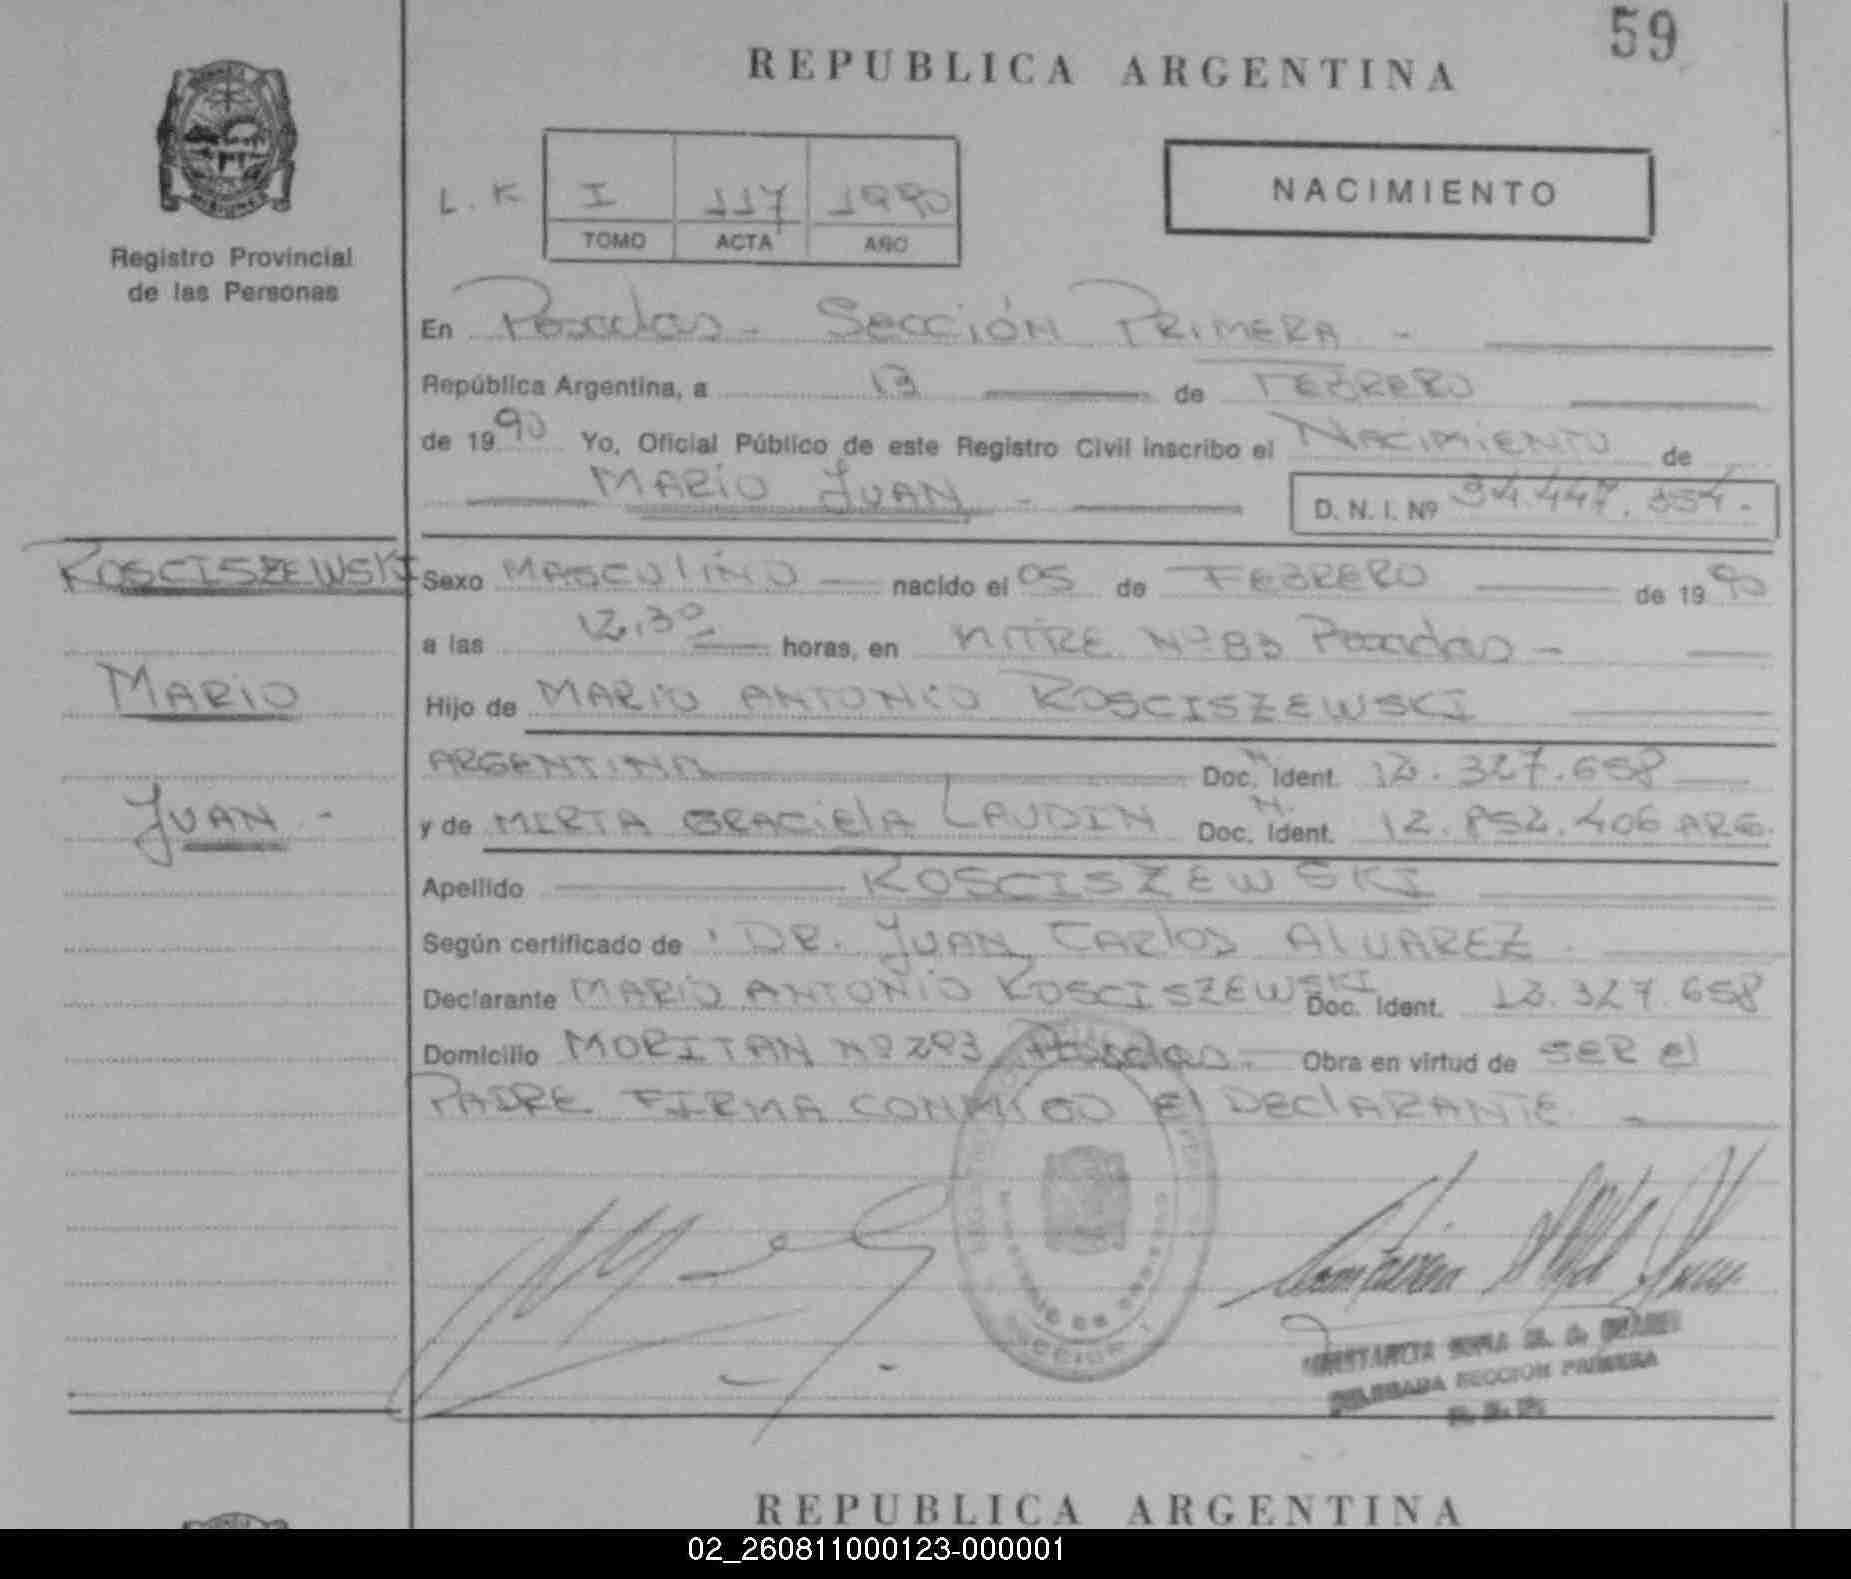 59
REPUBLICA ARGENTINA
L. K I 117 1990
TOMO ACTA AÑO
NACIMIENTO
Registro Provincial
de las Personas
En Posadas - Sección Primera -
República Argentina, a 13 de Febrero
de 1990 Yo, Oficial Público de este Registro Civil inscribo el Nacimiento de
Mario Juan -
D. N. I. Nº 34.447.
ROSCISZEWSKI
Mario
Juan -
Sexo Masculino nacido el 05 de Febrero de 1990
a las 12,30 horas, en Mitre Nº 83 Posadas -
Hijo de Mario Antonio ROSCISZEWSKI
Argentina Doc. N. Ident. 13.327.658
y de Mirta Graciela Laudin Doc. N. Ident. 12.852.406 Arg.
Apellido ROSCISZEWSKI
Según certificado de Dr. Juan Carlos Alvarez
Declarante Mario Antonio ROSCISZEWSKI Doc. Ident. 13.327.658
Domicilio Moritan Nº 293 Posadas - Obra en virtud de ser el
Padre Firma conmigo el declarante -
SECCION PRIMERA
REPUBLICA ARGENTINA
02_260811000123-000001